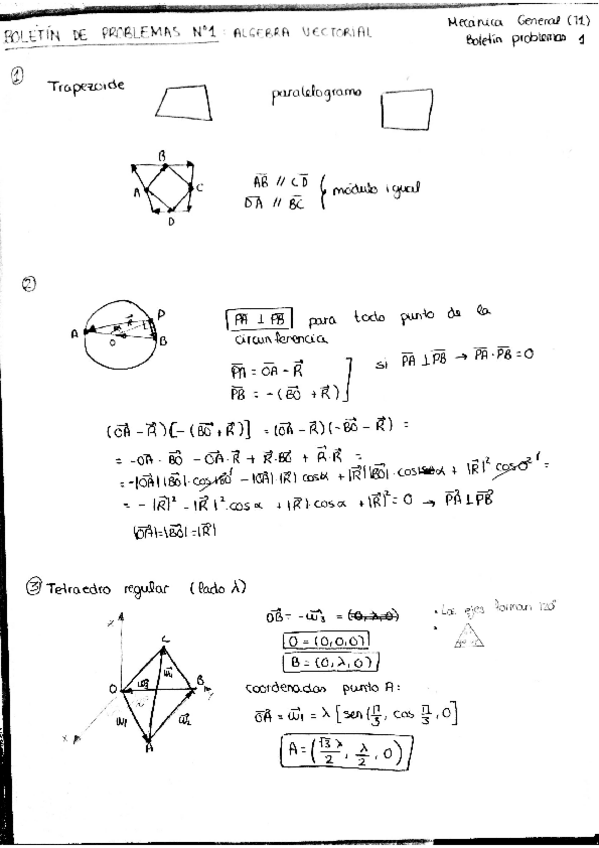 Mecánica General (T1)
BOLETÍN DE PROBLEMAS Nº1: ALGEBRA VECTORIAL
Boletín problemas 1
①
Trapezoide
paralelogramo
B
A
C
D
AB // CD
DA // BC
módulo igual
②
P
R
A
O
B
PA ⊥ PB para todo punto de la
circunferencia
PA = OA - R
PB = -(BO + R)
si PA ⊥ PB → PA · PB = 0
(OA - R)[-(BO + R)] = (OA - R)(-BO - R) =
= -OA · BO - OA · R + R · BO + R · R =
= -|OA||BO| · cos 180 - |OA| · |R| cos α + |R||BO| · cos α + |R|² cos 0° =
= -|R|² - |R|² · cos α + |R| · cos α + |R|² = 0 → PA ⊥ PB
|OA| = |BO| = |R|
③ Tetraedro regular (lado λ)
OB = -ω₃ = (0, λ, 0)
Los ejes forman 120°
O = (0,0,0)
B = (0, λ, 0)
z
C
O
B
y
x
A
ω₁
ω₂
ω₃
ω₄
coordenadas punto A:
OA = ω₁ = λ [sen π/3, cos π/3, 0]
A = (√3λ/2, λ/2, 0)